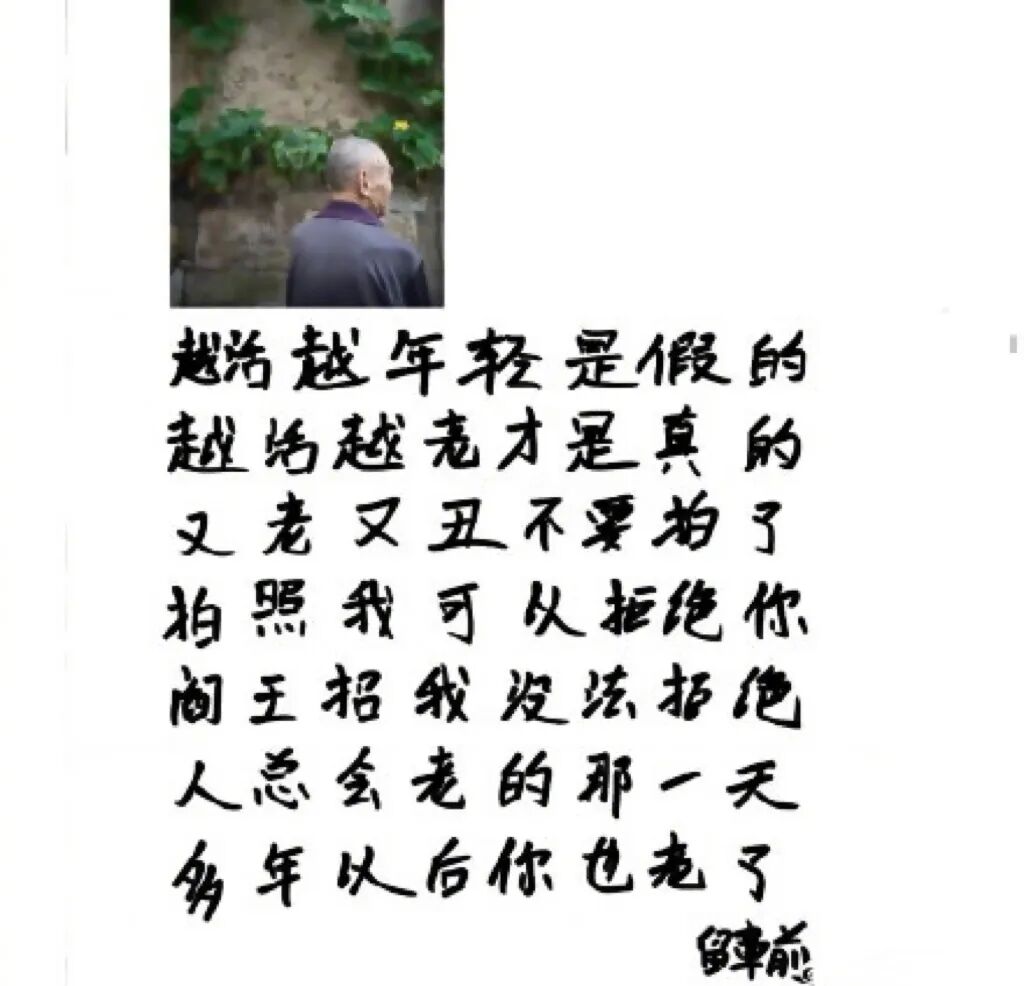 越活越年轻是假的
越活越老才是真的
又老又丑不要拍了
拍照我可以拒绝你
阎王招我没法拒绝
人总会老的那一天
多年以后你也老了
留车前